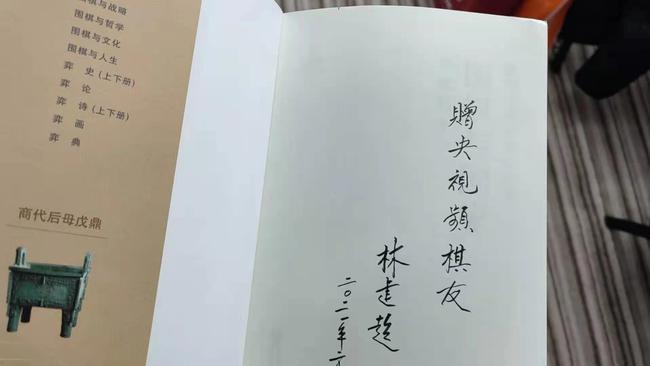 围棋与战略
围棋与哲学
围棋与文化
围棋与人生
弈 史(上下册)
弈 论
弈 诗(上下册)
弈 画
弈 典
商代后母戊鼎
贈央視頻棋友
林建超
二〇二一年六